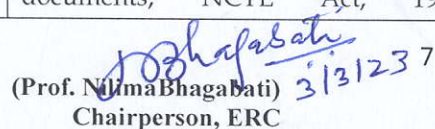 documents, NCTE Act, 19
Bhagabati
3/3/23 7
(Prof. NilimaBhagabati)
Chairperson, ERC